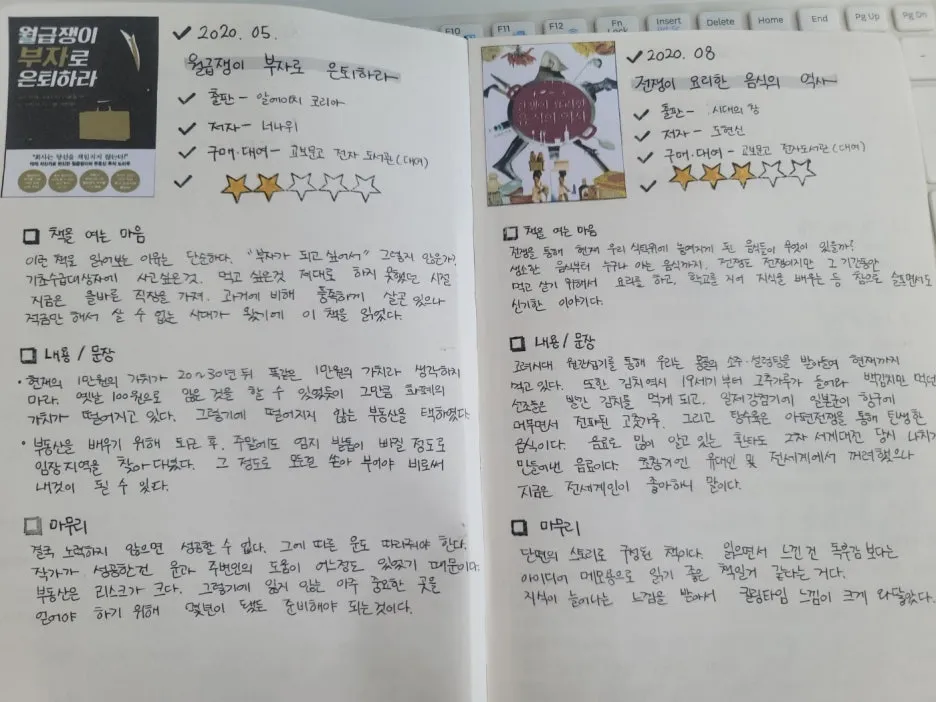 F10
F11
F12
Fn
Lock
Insert
Delete
Home
End
Pg Up
Pg Dn
월급쟁이
부자로
은퇴하라
"회사는 당신을 책임지지 않는다!"
2020. 05.
월급쟁이 부자로 은퇴하라
출판 - 알에이치 코리아
저자 - 너나위
구매·대여 - 교보문고 전자 도서관 (대여)
책을 여는 마음
이런 책을 읽어보는 이유는 단순하다. "부자가 되고 싶어서" 그렇지 않은가?
기초수급대상자에 사고싶은것. 먹고 싶은것 제대로 하지 못했던 시절
지금은 올바른 직장을 가져. 과거에 비해 풍족하게 살곤 있으나
적금만 해서 살 수 없는 시대가 왔기에 이 책을 읽었다.
내용 / 문장
• 현재의 1만원의 가치가 20~30년 뒤 똑같은 1만원의 가치라 생각하지
마라. 옛날 100원으로 많은 것을 할 수 있었듯이 그만큼 화폐의
가치가 떨어지고 있다. 그렇기에 떨어지지 않는 부동산을 택하였다.
• 부동산을 배우기 위해 퇴근 후. 주말에도 엄지 발톱이 빠질 정도로
임장지역을 찾아 다녔다. 그 정도로 쏟아 부어야 비로써
내것이 될 수 있다.
마무리
결국 노력하지 않으면 성공할 수 없다. 그에 따른 운도 따라줘야 한다.
작가가 성공한건 운과 주변인의 도움이 어느정도 있었기 때문이다.
부동산은 리스크가 크다. 그렇기에 잃지 않는 아주 중요한 곳을
얻어야 하기 위해 몇년이 됐든 준비해야 되는것이다.
전쟁이 요리한
음식의 역사
2020. 08
전쟁이 요리한 음식의 역사
출판 - 시대의 창
저자 - 도현신
구매·대여 - 교보문고 전자도서관 (대여)
책을 여는 마음
전쟁을 통해 현재 우리 식탁위에 놓여지게 된 음식들이 무엇이 있을까?
생소한 음식부터 누구나 아는 음식까지. 전쟁도 전쟁이지만 그 기간동안
먹고 살기 위해서 요리를 하고, 학교를 지어 지식을 배우는 등 참으로 슬프면서도
신기한 이야기다.
내용 / 문장
고려시대 원간섭기를 통해 우리는 몽골의 소주·설렁탕을 받아들여 현재까지
먹고 있다. 또한 김치 역시 19세기부터 고춧가루가 들어와 백김치만 먹던
선조들은 빨간 김치를 먹게 되고, 일제강점기에 일본군이 항구에
머무면서 전파된 고춧가루. 그리고 탕수육은 아편전쟁을 통해 탄생한
음식이다. 음료로 많이 알고 있는 환타도 2차 세계대전 당시 나치가
만들어낸 음료이다. 초창기엔 유대인 및 전세계에서 꺼려했으나
지금은 전세계인이 좋아하니 말이다.
마무리
단편의 스토리로 구성된 책이다. 읽으면서 느낀건 독후감 보다는
아이디어 메모용으로 읽기 좋은 책일거 같다는 거다.
지식이 늘어나는 느낌을 받아서 킬링타임 느낌이 크게 와닿았다.